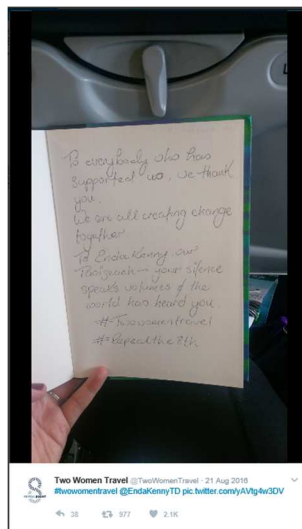 To everybody who has
supported us, we thank
you.
We are all creating change
together
To Enda Kenny our
Taoiseach - your silence
speaks volumes & the
world has heard you.
#Twowomentravel
#Repealthe8th
Two Women Travel @TwoWomenTravel · 21 Aug 2016
#twowomentravel @EndaKennyTD pic.twitter.com/yAVtg4w3DV
38 977 2.1K